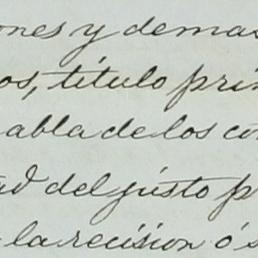 ones y demas
os, título pri
abla de los co
ad del justo p
la recision ó s